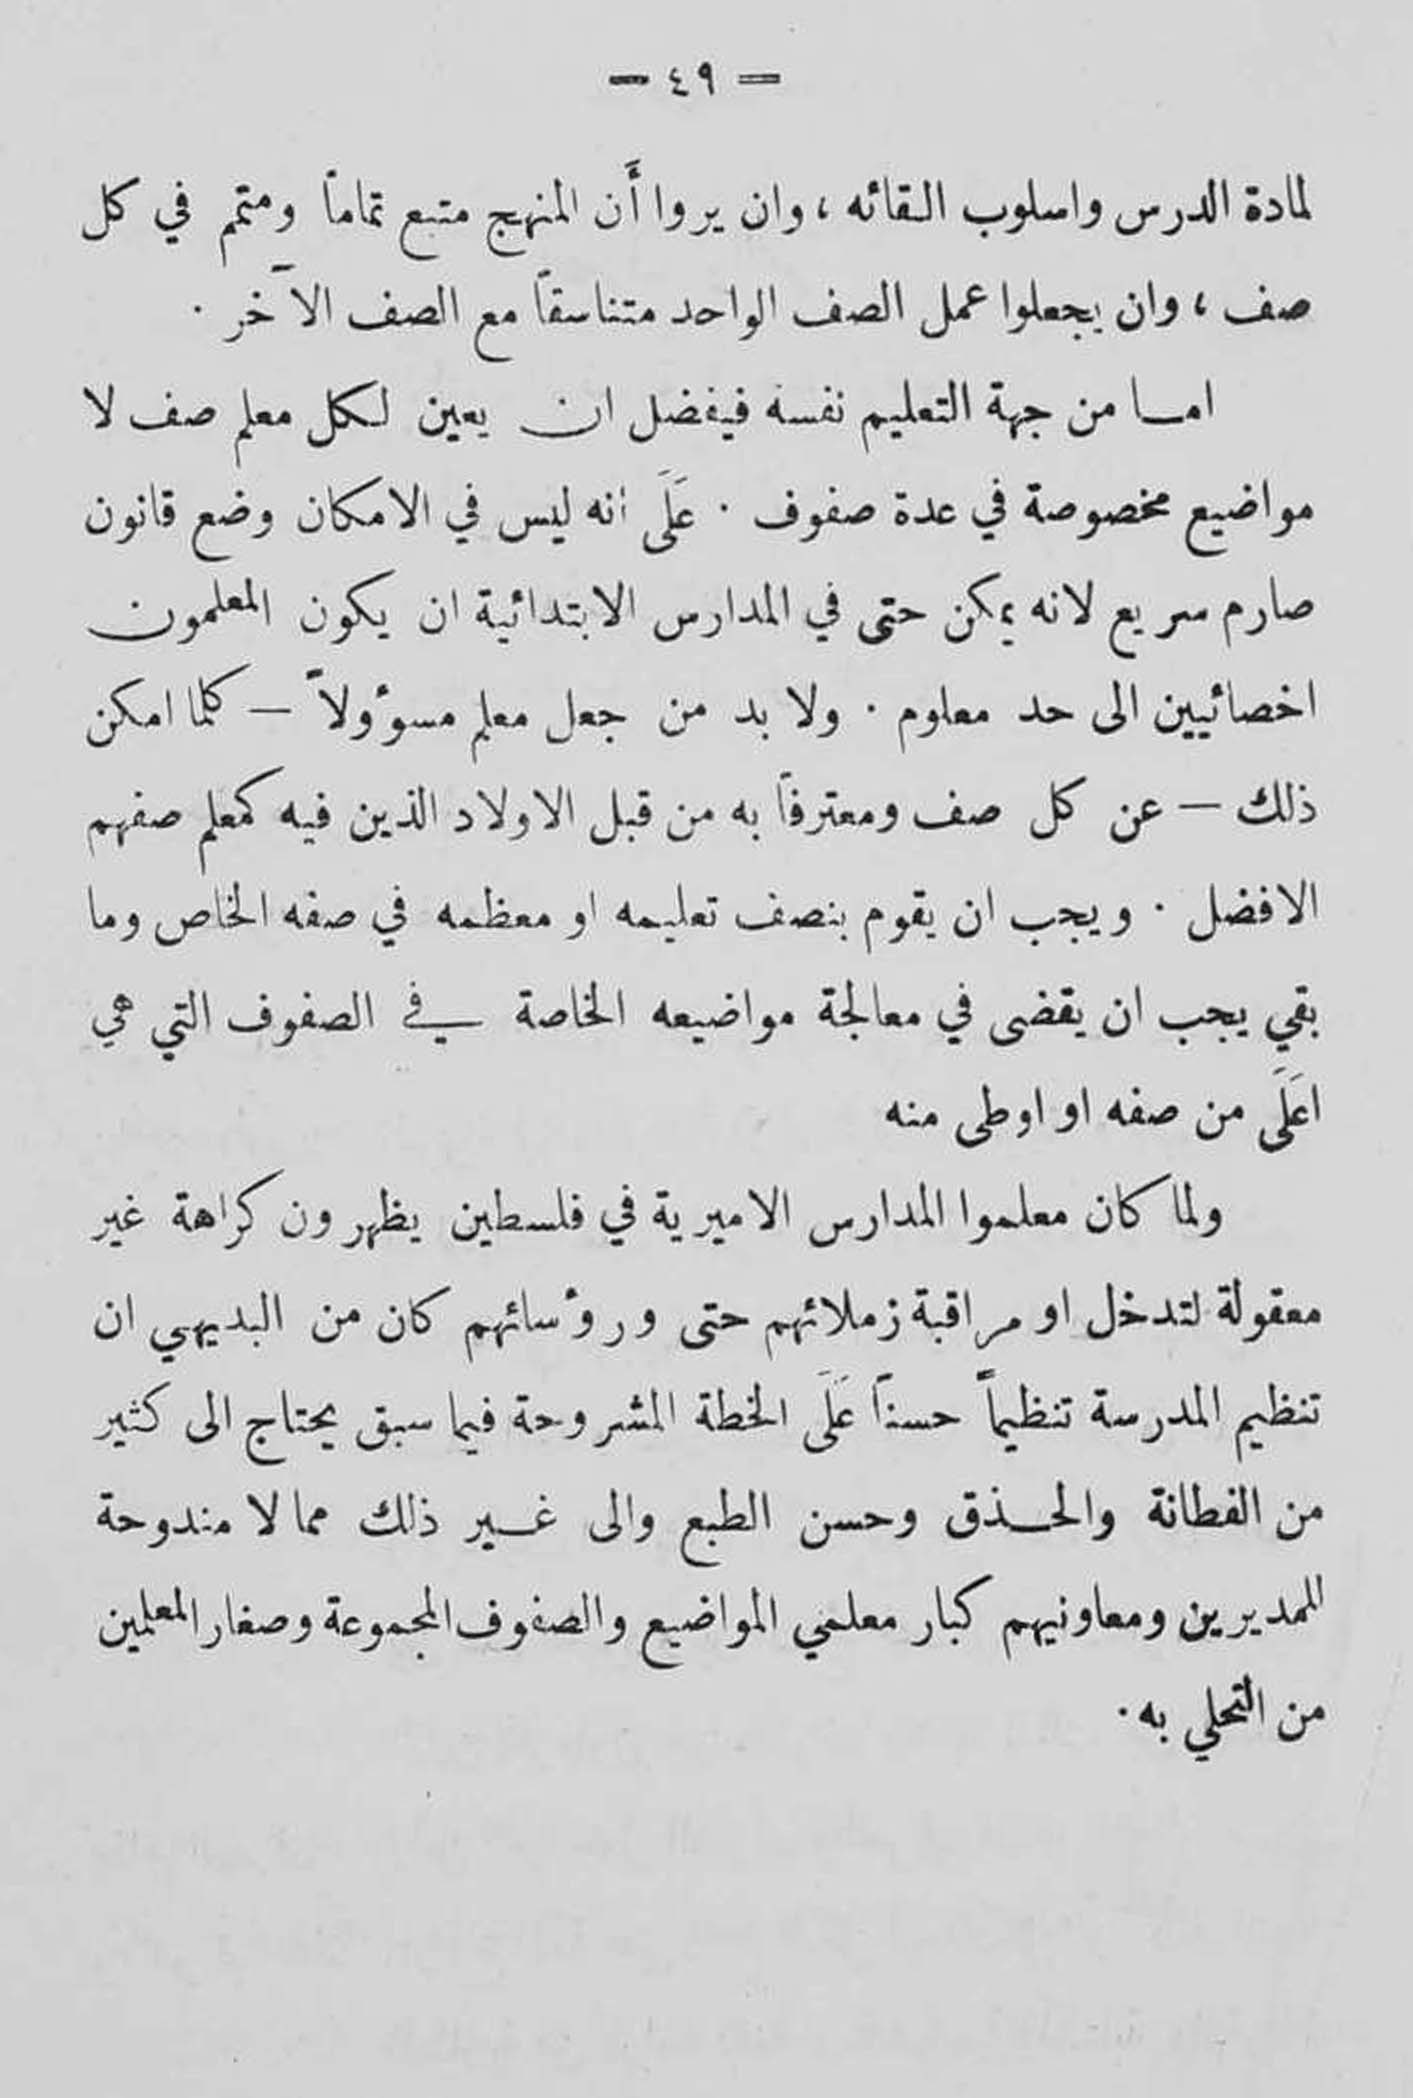 — ٤٩ —
لمادة الدرس واسلوب القائه ، وان يروا أَن المنهج متبع تماماً ومتمم في كل
صف ، وان يجعلوا عمل الصف الواحد متناسقاً مع الصف الآخر .
اما من جهة التعليم نفسه فيفضل ان يعين لكل معلم صف لا
مواضيع مخصوصة في عدة صفوف . عَلَى انه ليس في الامكان وضع قانون
صارم سريع لانه يمكن حتى في المدارس الابتدائية ان يكون المعلمون
اخصائيين الى حد معلوم . ولا بد من جعل معلم مسوؤولاً — كلما امكن
ذلك — عن كل صف ومعترفاً به من قبل الاولاد الذين فيه كمعلم صفهم
الافضل . ويجب ان يقوم بنصف تعليمه او معظمه في صفه الخاص وما
بقي يجب ان يقضى في معالجة مواضيعه الخاصة في الصفوف التي هي
اعَلَى من صفه او اوطى منه
ولما كان معلموا المدارس الاميرية في فلسطين يظهرون كراهة غير
معقولة لتدخل او مراقبة زملائهم حتى وروؤسائهم كان من البديهي ان
تنظيم المدرسة تنظيماً حسناً عَلَى الخطة المشروحة فيما سبق يحتاج الى كثير
من الفطانة والحذق وحسن الطبع والى غير ذلك مما لا مندوحة
للمديرين ومعاونيهم كبار معلمي المواضيع والصفوف المجموعة وصغار المعلمين
من التحلي به .